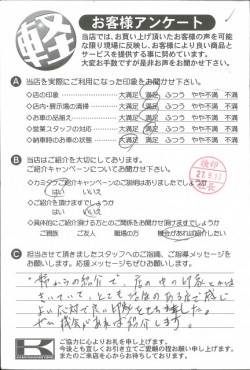 軽
お客様アンケート
当店では、お買い上げ頂いたお客様の声を可能
な限り現場に反映し、お客様により良い商品と
サービスを提供する事に努めています。
大変お手数ですが是非お声をお聞かせ下さい。
A 当店を実際にご利用になった印象をお聞かせ下さい。
◇店の印象 大満足 満足 ふつう やや不満 不満
◇店内・展示場の清掃 大満足 満足 ふつう やや不満 不満
◇お車の品揃え 大満足 満足 ふつう やや不満 不満
◇営業スタッフの対応 大満足 満足 ふつう やや不満 不満
◇納車時のお車の状態 大満足 満足 ふつう やや不満 不満
B 当店はご紹介を大切にしております。
ご紹介キャンペーンについてお聞かせ下さい。
◇カミタケご紹介キャンペーンのご説明はありましたでしょうか
はい いいえ
◇ご紹介を頂けますでしょうか
はい いいえ
◇具体的にご紹介頂ける方とのご関係をお聞かせ頂けますでしょうか
ご親族 ご友人 職場の方 機会があれば紹介したい
検印
27.8.13
店長
C 担当させて頂きましたスタッフへのご指摘、ご指導メッセージを
お願いします。応援メッセージもぜひお願いします。
紹介で、店の中の印象
とても
よい対応で良い印象を
機会があれば紹介します。
ご協力に心よりお礼を申し上げます。
今後とも宜しくお引き立てご愛顧の程お願い申し上げます。
またのご来店を心からお待ちしております。